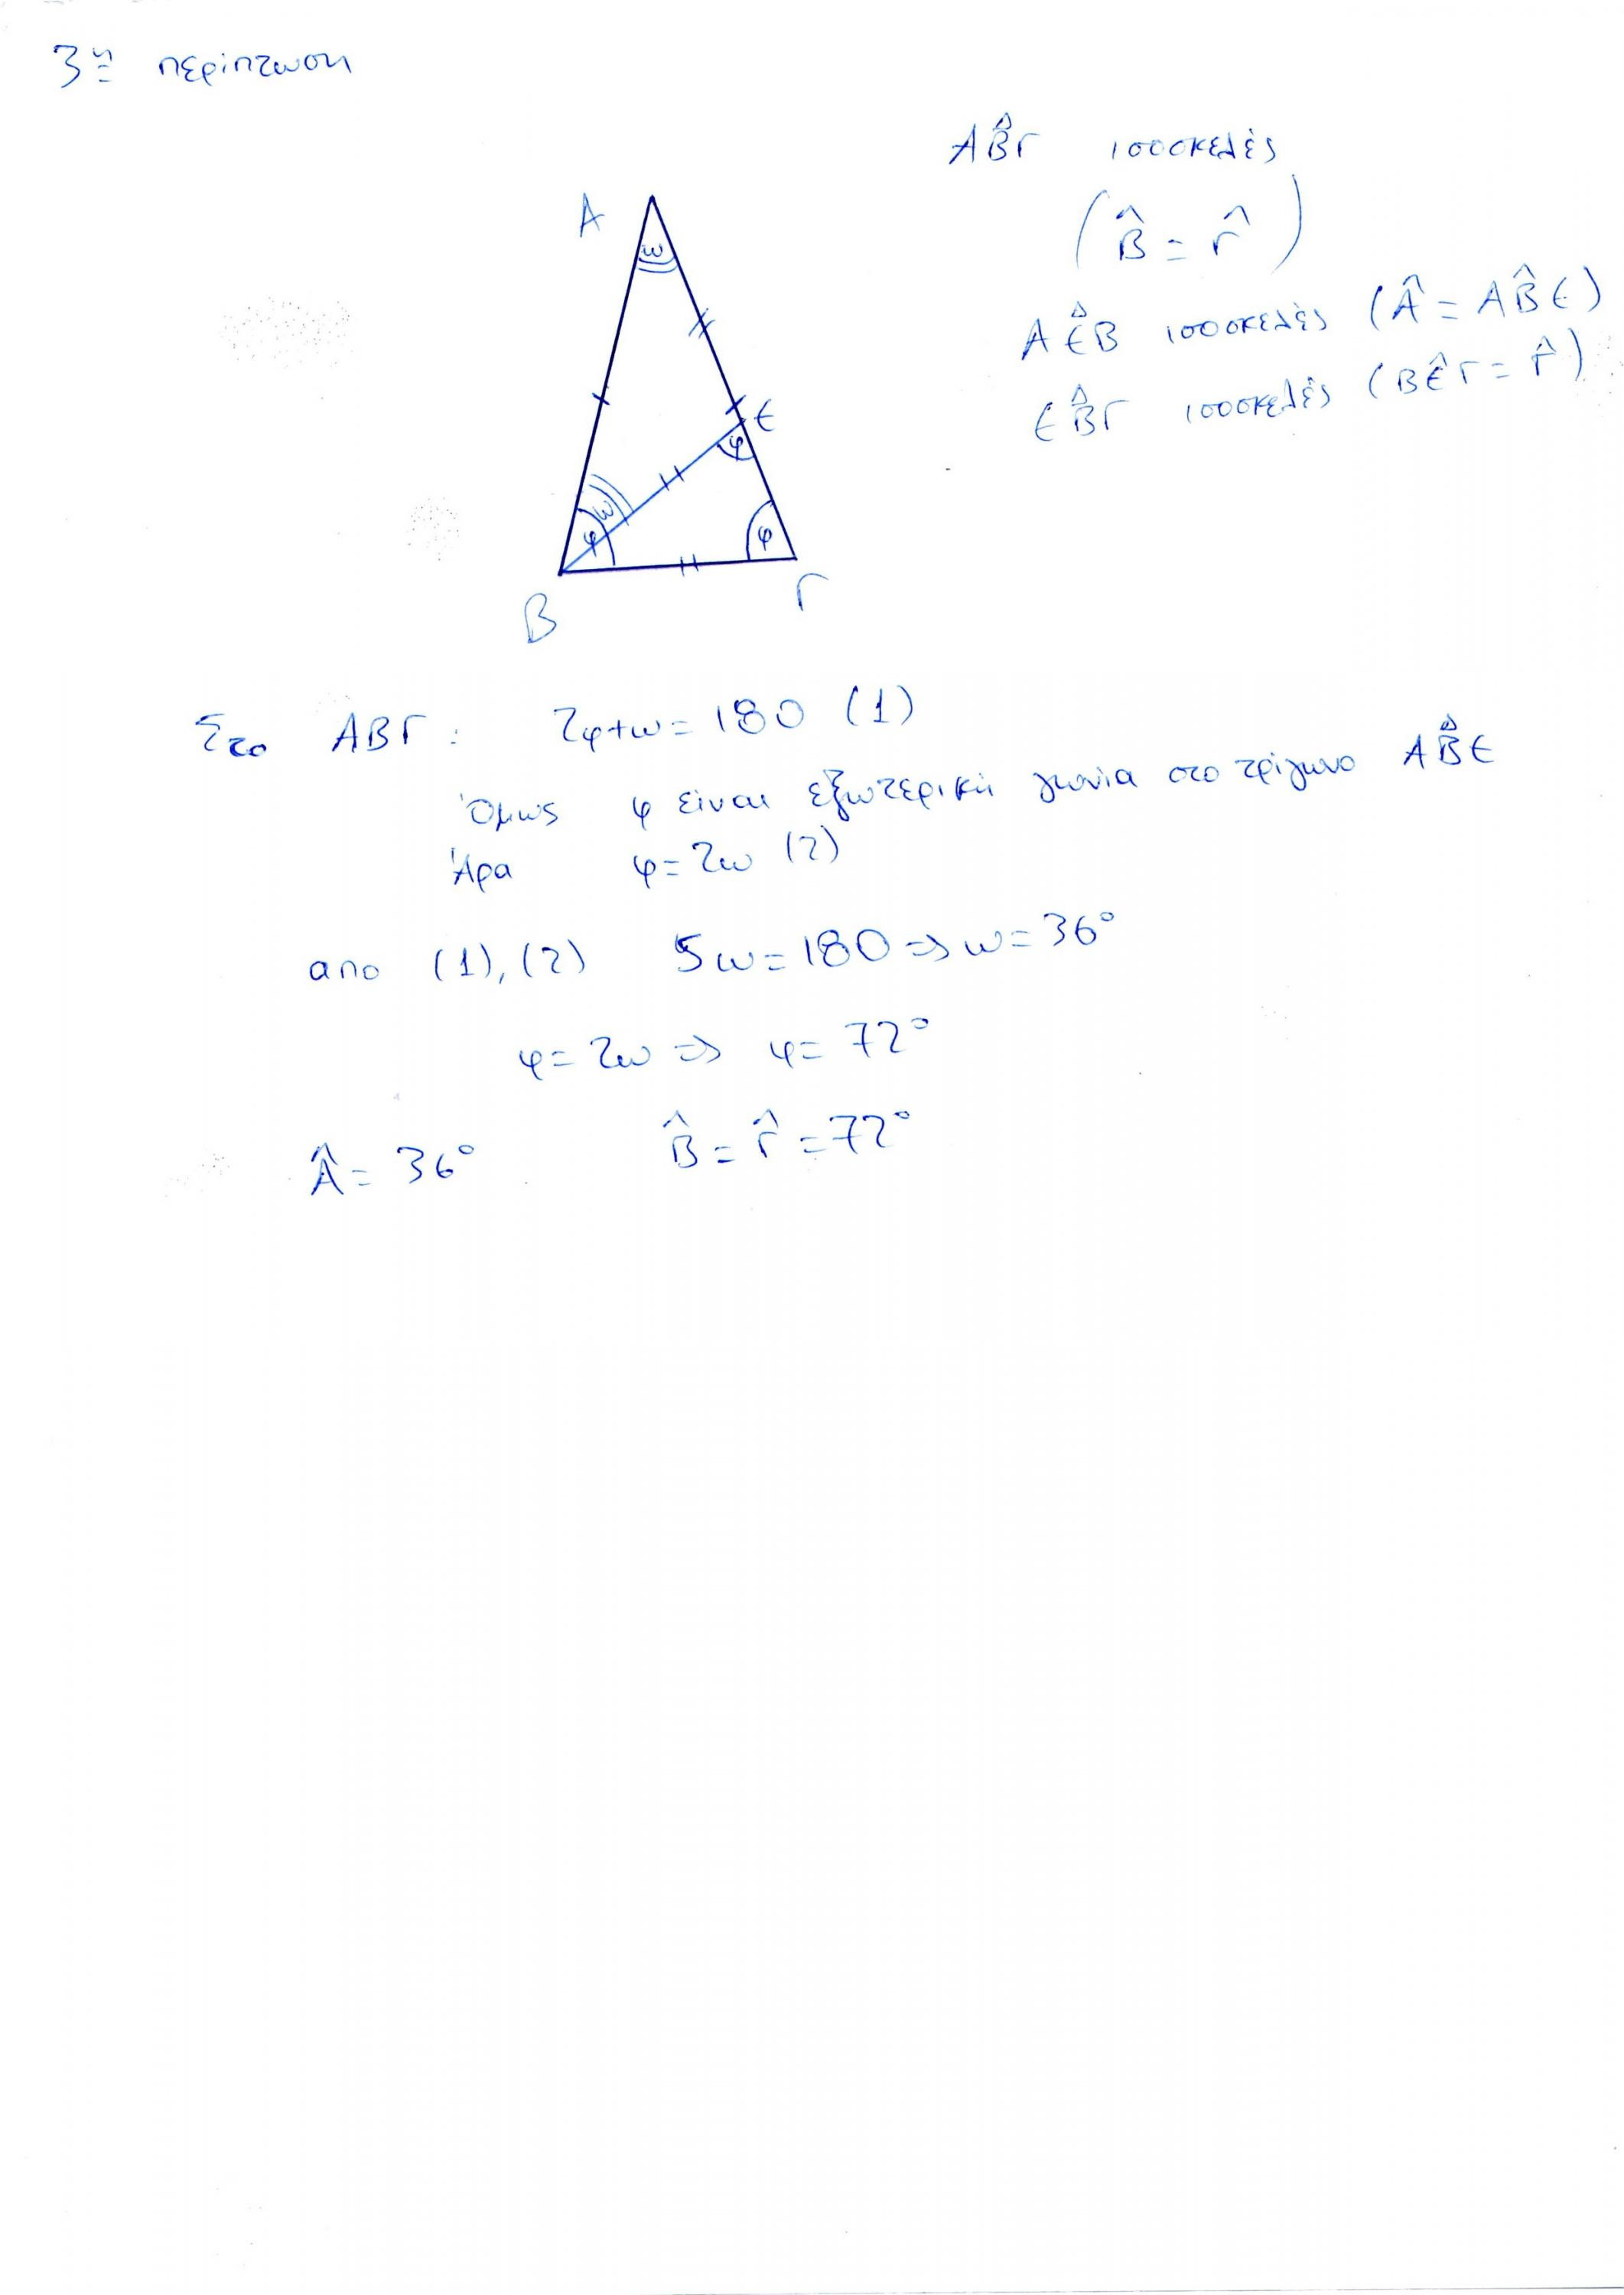 3η περίπτωση
ΑΒ̂Γ ισοσκελές
(Β̂ = Γ̂)
ΑΕ̂Β ισοσκελές (Â = ΑΒ̂Ε)
ΕΒ̂Γ ισοσκελές (ΒΕ̂Γ = Γ̂)
Α
ω
Ε
φ
ω
φ
φ
Β
Γ
Στο ΑΒΓ: 2φ+ω=180 (1)
Όμως φ είναι εξωτερική γωνία στο τρίγωνο ΑΒ̂Ε
Άρα φ=2ω (2)
απο (1),(2) 5ω=180 => ω=36°
φ=2ω => φ=72°
Â=36° Β̂=Γ̂=72°